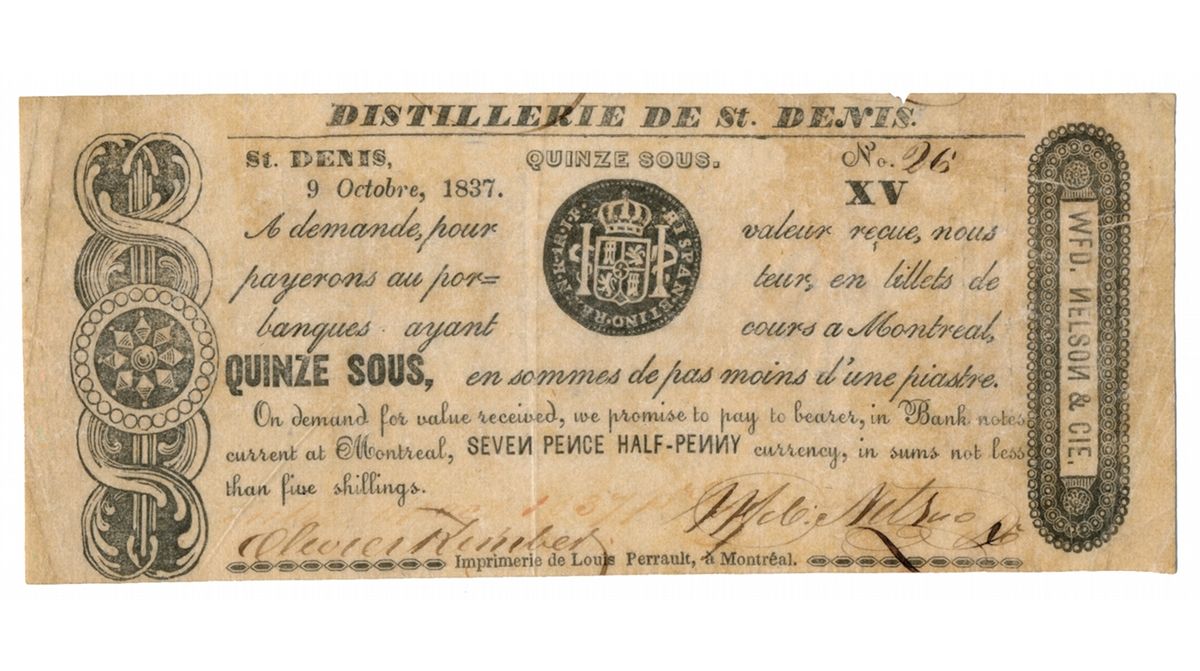 DISTILLERIE DE St. DENIS.
St. DENIS,
QUINZE SOUS.
No. 26
9 Octobre, 1837.
XV
A demande, pour valeur reçue, nous
payerons au por= teur, en billets de
banques ayant cours a Montreal,
QUINZE SOUS, en sommes de pas moins d'une piastre.
On demand for value received, we promise to pay to bearer, in Bank notes
current at Montreal, SEVEN PENCE HALF-PENNY currency, in sums not less
than five shillings.
Imprimerie de Louis Perrault, à Montréal.
WFD. NELSON & CIE.